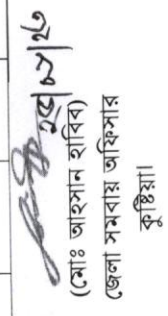 (মোঃ আহসান হাবিব)
জেলা সমবায় অফিসার
কুষ্টিয়া।